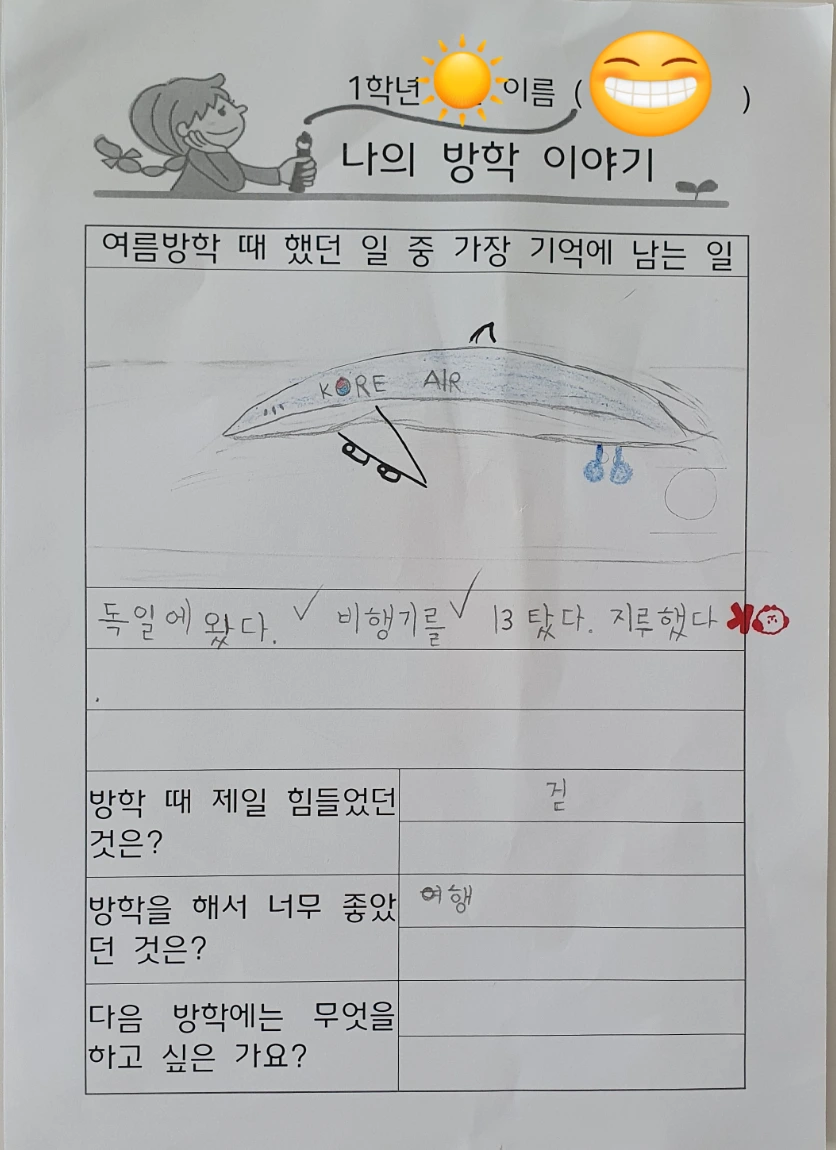 1학년 이름 ( )
나의 방학 이야기
여름방학 때 했던 일 중 가장 기억에 남는 일
KORE AIR
독일에 왔다. 비행기를 13 탔다. 지루했다
방학 때 제일 힘들었던
것은?
걷
방학을 해서 너무 좋았
던 것은?
여행
다음 방학에는 무엇을
하고 싶은 가요?